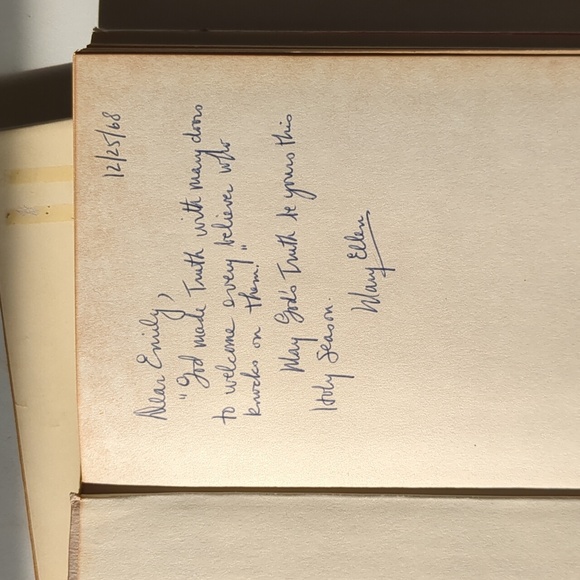 12/25/68
Dear Emily,
"God made Truth with many doors
to welcome every believer who
knocks on them."
May God's Truth be yours this
Holy Season.
Mary Ellen